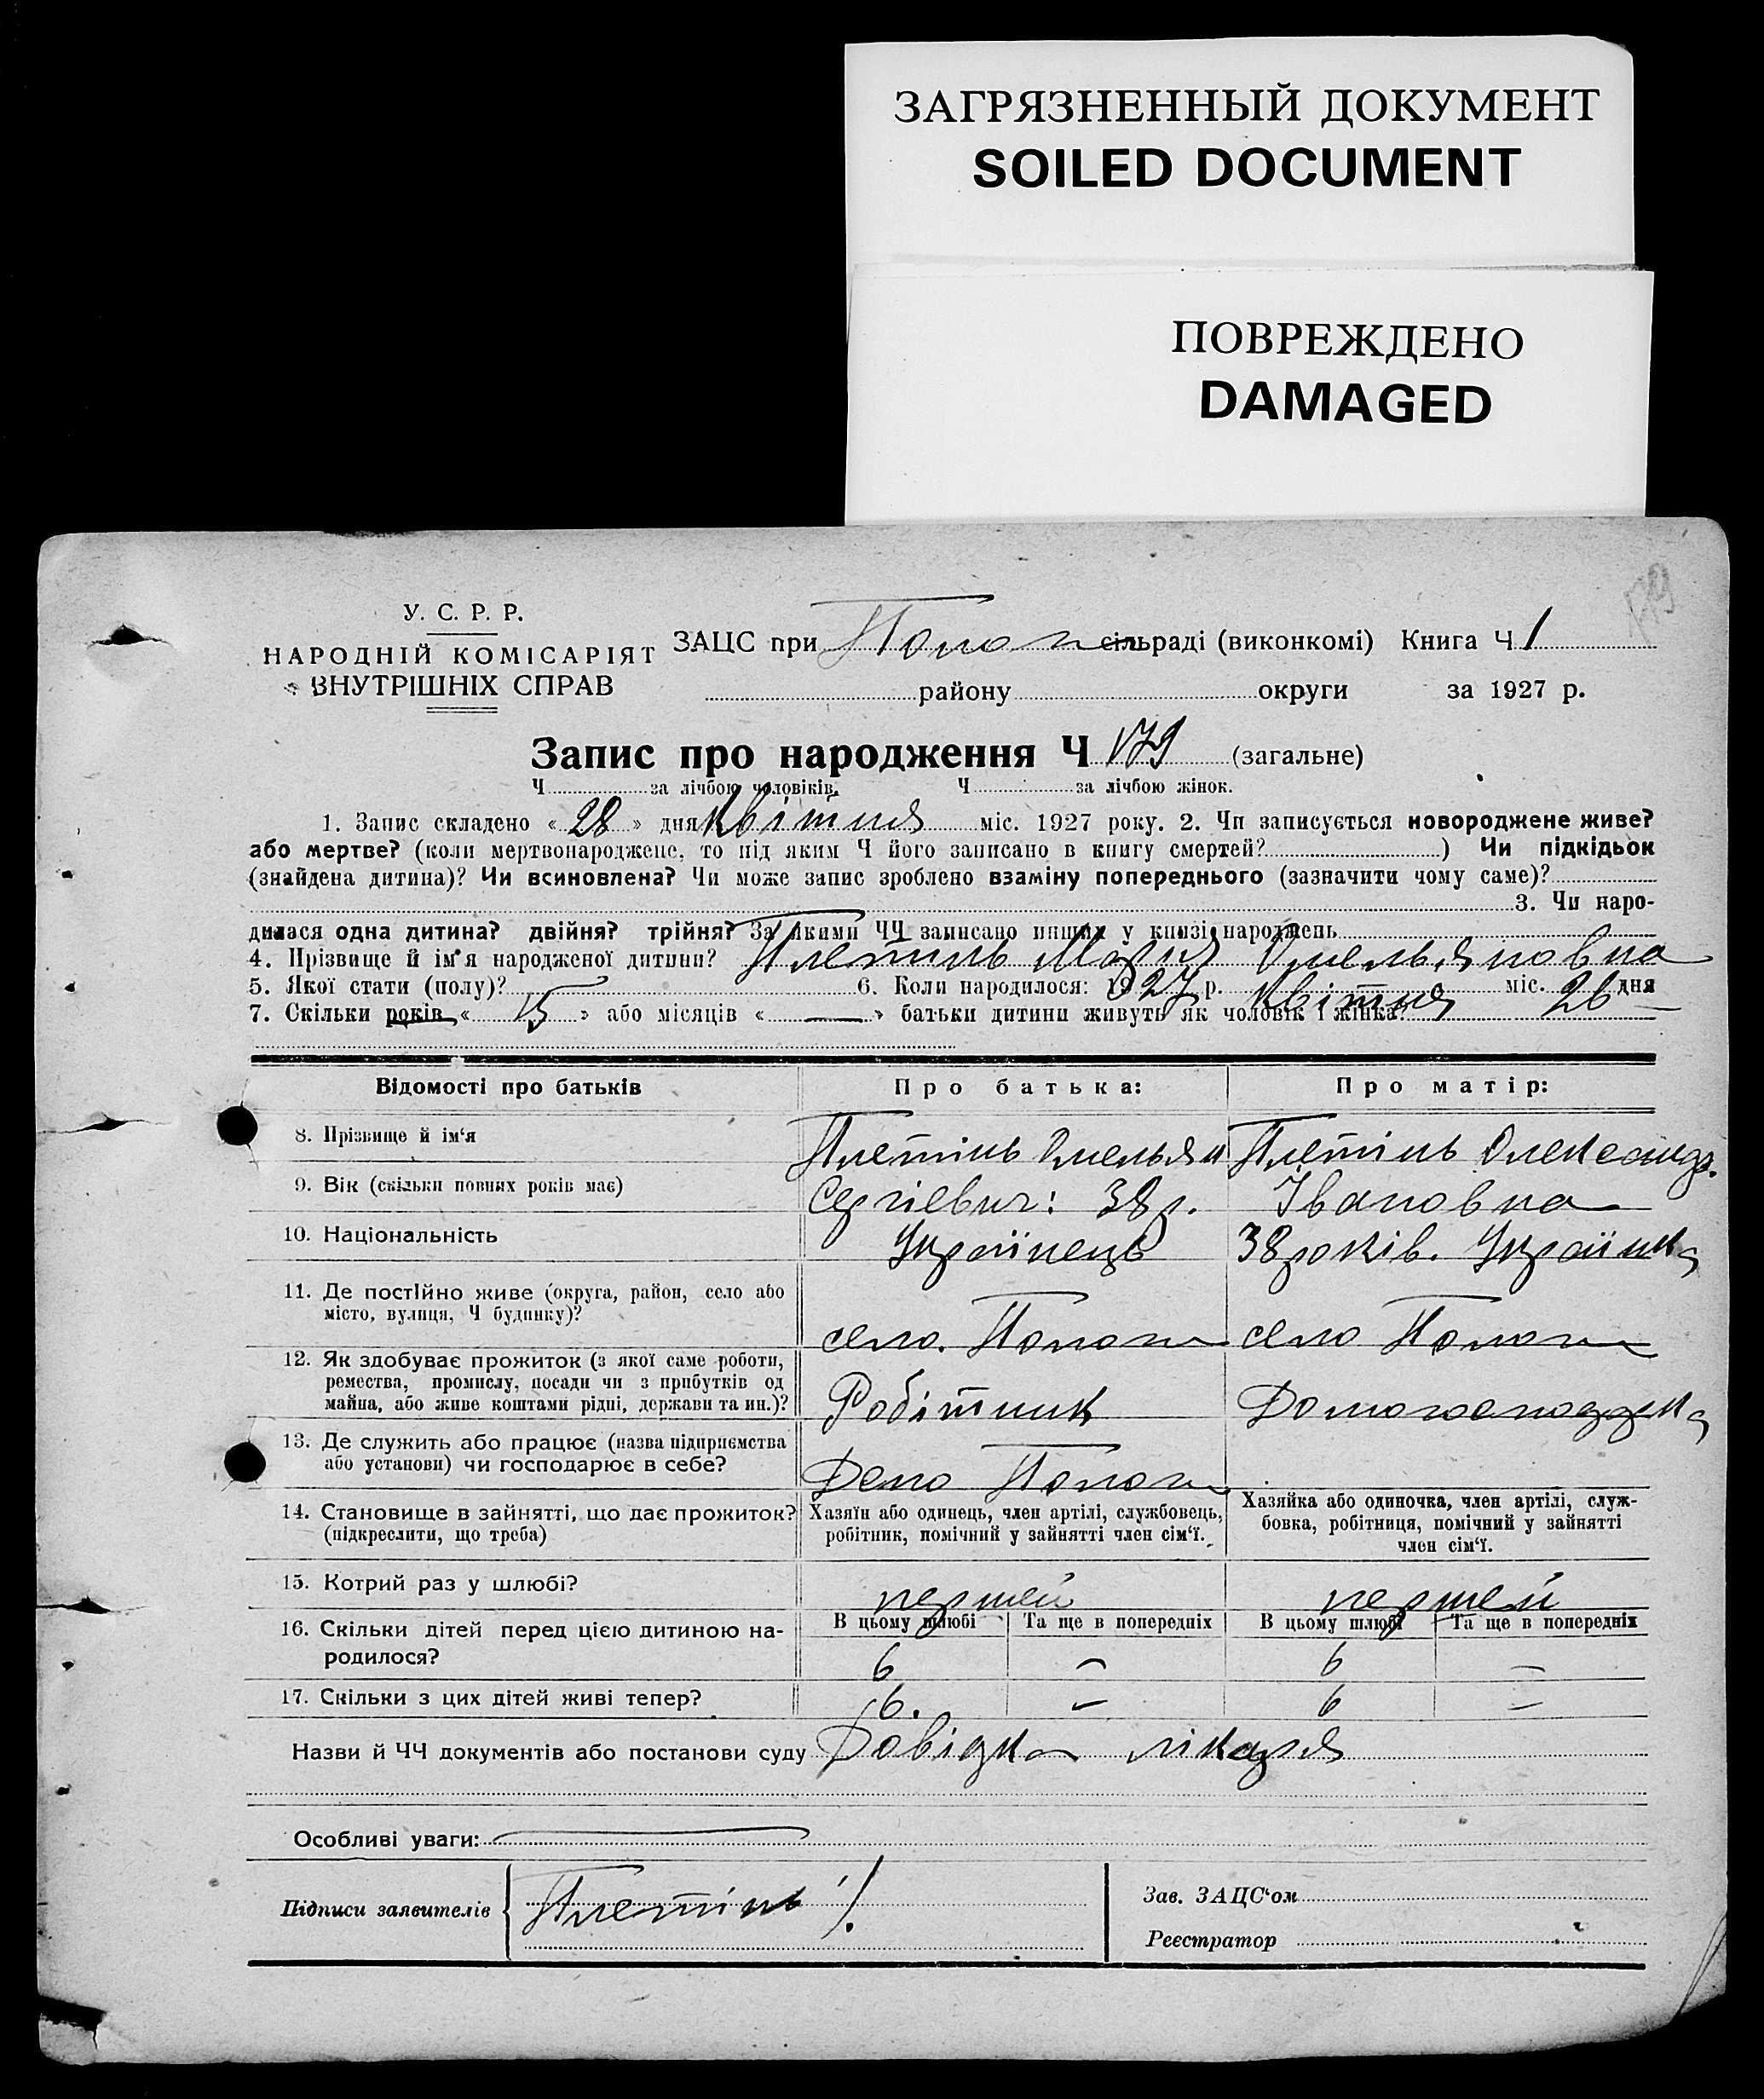 ЗАГРЯЗНЕННЫЙ ДОКУМЕНТ
SOILED DOCUMENT
ПОВРЕЖДЕНО
DAMAGED
У. С. Р. Р.
НАРОДНІЙ КОМІСАРІЯТ
ВНУТРІШНІХ СПРАВ
ЗАЦС при сільраді (виконкомі) Книга Ч 1
району округи за 1927 р.
Запис про народження Ч 179 (загальне)
Ч за лічбою чоловіків. Ч за лічбою жінок.
1. Запис складено « 28 » дня Квітня міс. 1927 року. 2. Чи записується новороджене живе?
або мертве? (коли мертвонароджене, то під яким Ч його записано в книгу смертей? ) Чи підкідьок
(знайдена дитина)? Чи всиновлена? Чи може запис зроблено взаміну попереднього (зазначити чому саме)?
3. Чи наро-
дилася одна дитина? двійня? трійня? За якими ЧЧ записано инших у книзі народжень
4. Прізвище й ім'я народженої дитини? Плетинь Марія Омельяновна
5. Якої стати (полу)? 6. Коли народилося: 1927 р. Квітня міс. 26 дня
7. Скільки років « 15 » або місяців « — » батьки дитини живуть як чоловік і жінка?
Відомості про батьків Про батька: Про матір:
8. Прізвище й ім'я Плетінь Омельян Плетінь Олександр.
9. Вік (скільки повних років має) Сергіевич: 38 р. Івановна
10. Національність Українець 38 років. Українка
11. Де постійно живе (округа, район, село або
місто, вулиця, Ч будинку)? село. Пологи село Пологи
12. Як здобуває прожиток (з якої саме роботи,
ремества, промислу, посади чи з прибутків од
майна, або живе коштами рідні, держави та ин.)? Робітник
13. Де служить або працює (назва підприємства
або установи) чи господарює в себе? Депо Пологи
14. Становище в зайнятті, що дає прожиток?
(підкреслити, що треба)
Хазяїн або одинець, член артілі, службовець,
робітник, помічний у зайнятті член сім'ї.
Хазяйка або одиночка, член артілі, служ-
бовка, робітниця, помічний у зайнятті
член сім'ї.
15. Котрий раз у шлюбі? першей першей
В цьому шлюбі Та ще в попередніх В цьому шлюбі Та ще в попередніх
16. Скільки дітей перед цією дитиною на-
родилося? 6 — 6 —
17. Скільки з цих дітей живі тепер? 6. — 6 —
Назви й ЧЧ документів або постанови суду Довідка лікаря
Особливі уваги:
Підписи заявителів Плетінь
Зав. ЗАЦС'ом
Реєстратор